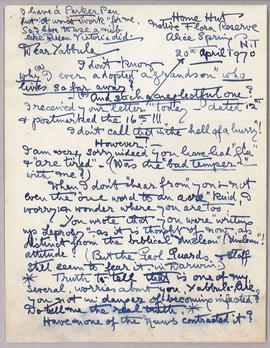 I have a Parker Pen
but it won't work for me.
So I have to use a nib
like Queen Victoria did!
Home Hut
Native Flora Reserve
Alice Springs
N.T
20th April 1970
Dear Yabbula
I don't know
why I ever adopted a "grandson" who
lives so far away
And such a neglectful one?
I received your letter "today" dated 12th
& postmarked the 16th!!!
I don't call that in the hell of a hurry!
However,
I am very sorry indeed you have had "flu"
& "are tired" - (Was the "bad temper"
with me?)
When I don't hear from "you" - not
even the one word to an Kuid I
worry & wonder where you are too -
You wrote that you were writing
up leprosy" - as it is thought of now as
distinct from the biblical "Unclean" "Unclean"!
attitude (But the Gaol Guards, & staff
still seem to fear it in Darwin)
* Truth to tell that is one of my
several, worries about you Yabbula. Are
you not in danger of becoming infected?
Do tell me the real truth. *
Have none of the Nuns contracted it?